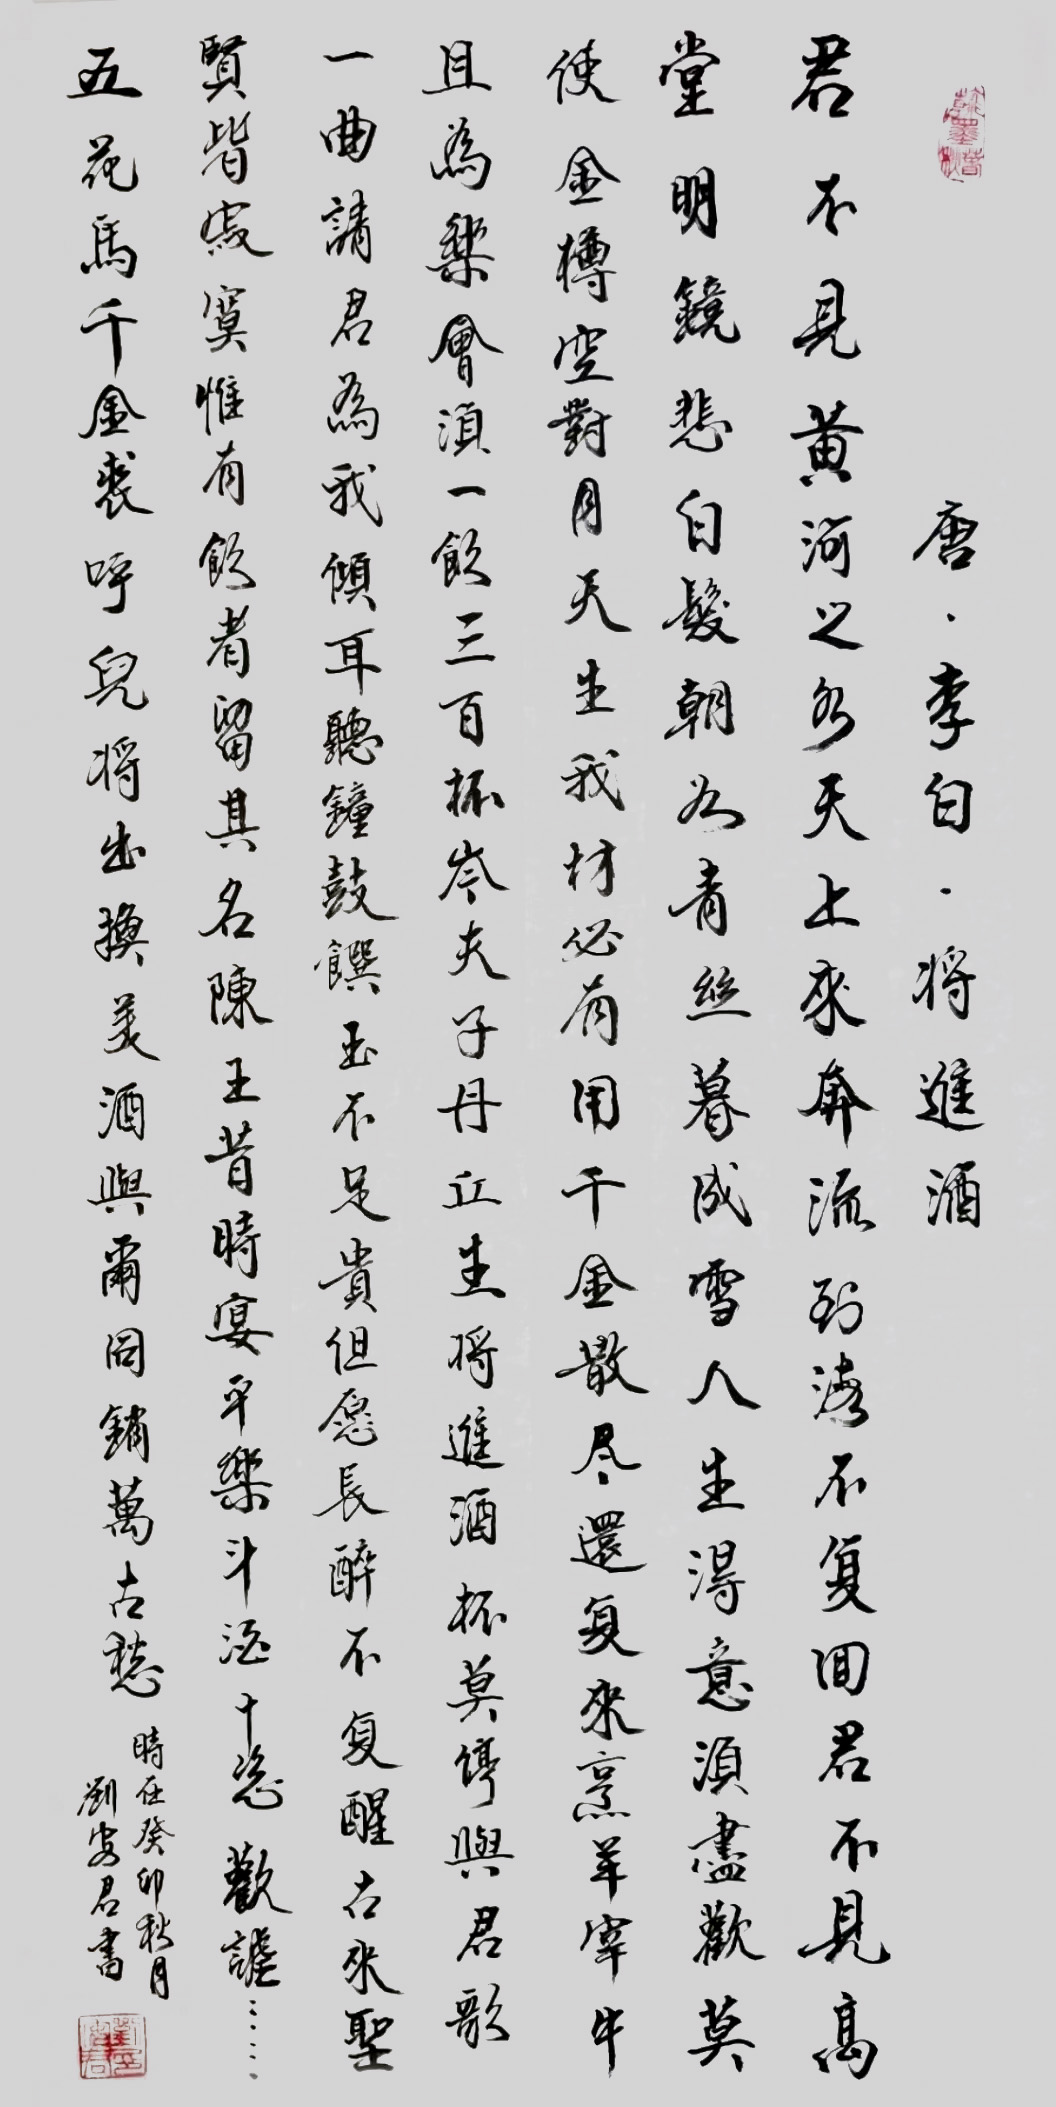 唐·李白·将進酒
君不見黄河之水天上来奔流到海不复回君不見高
堂明鏡悲白髮朝如青絲暮成雪人生得意須盡歡莫
使金樽空對月天生我材必有用千金散尽還复来烹羊宰牛
且為樂會須一飲三百杯岑夫子丹丘生将進酒杯莫停與君歌
一曲請君為我傾耳聽鐘鼓饌玉不足貴但愿長醉不复醒古来聖
賢皆寂寞惟有飲者留其名陳王昔時宴平樂斗酒十恣歡謔……
五花馬千金裘呼兒将出換美酒與爾同銷萬古愁
時在癸卯秋月
劉安君書